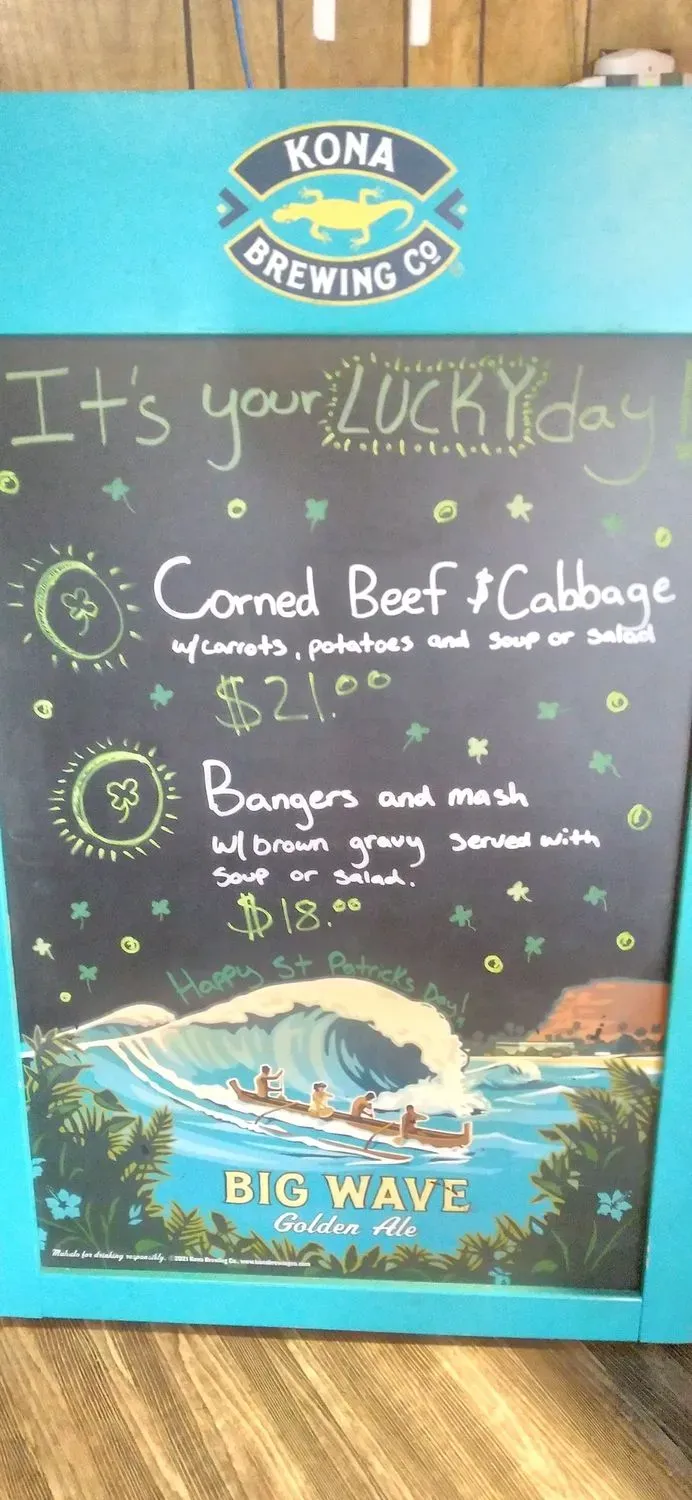 KONA
BREWING CO
It's your LUCKY day!
Corned Beef & Cabbage
w/carrots, potatoes and soup or salad
$21.00
Bangers and mash
w/ brown gravy served with
soup or salad.
$18.00
Happy St Patricks Day!
BIG WAVE
Golden Ale
Mahalo for drinking responsibly. ©2021 Kona Brewing Co., www.konabrewingco.com